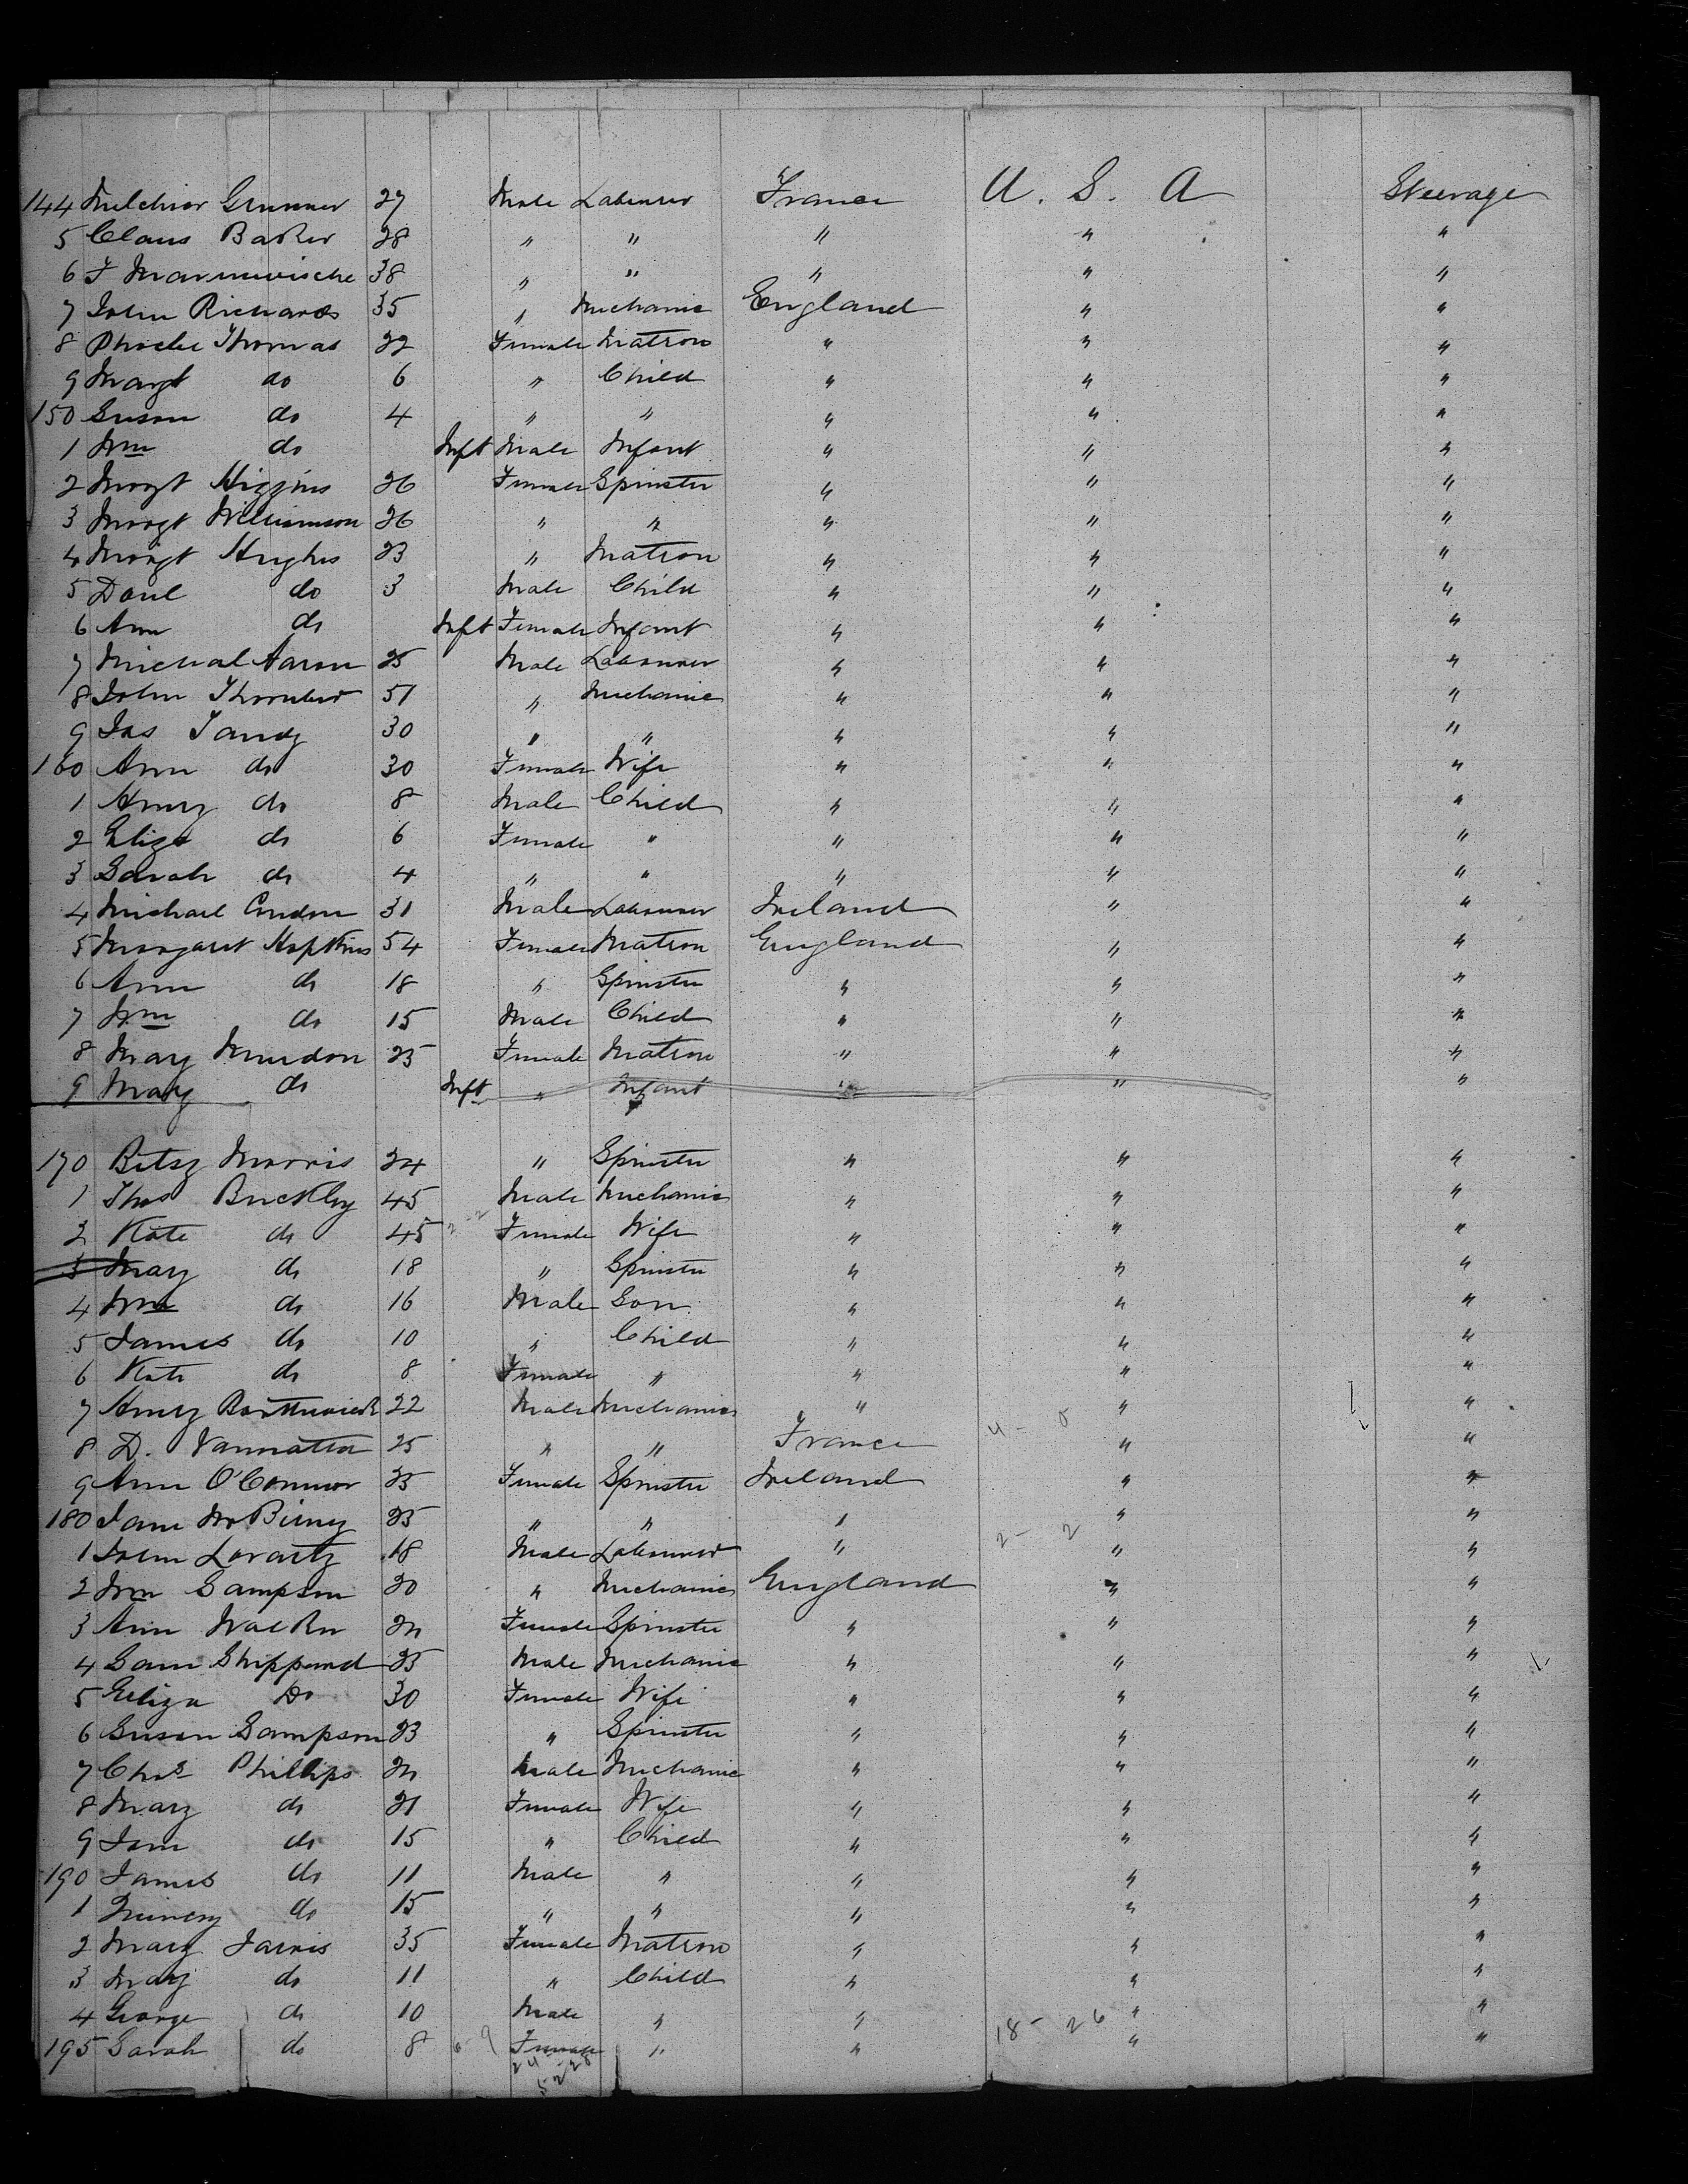 144 Melchior Grunner 27 Male Labourer France U. S. A Steerage
5 Claus Baker 28 " " " " "
6 F 38 " " " " "
7 John Richards 35 " Mechanic England " "
8 Phoebe Thomas 22 Female Matron " " "
9 Margt do 6 " Child " " "
150 Susan do 4 " " " " "
1 Wm do Inft Male Infant " " "
2 Margt Higgins 26 Female Spinster " " "
3 Margt Williamson 26 " " " " "
4 Margt Hughes 23 " Matron " " "
5 Danl do 3 Male Child " " "
6 Ann do Inft Female Infant " " "
7 Michal Aaron 25 Male Labourer " " "
8 John 51 " Mechanic " " "
9 Jas Tandy 30 " " " " "
160 Ann do 30 Female Wife " " "
1 Henry do 8 Male Child " " "
2 Eliza do 6 Female " " " "
3 Sarah do 4 " " " " "
4 Michael Condon 31 Male Labourer Ireland " "
5 Margaret Hopkins 54 Female Matron England " "
6 Ann do 18 " Spinster " " "
7 Wm do 15 Male Child " " "
8 Mary 25 Female Matron " " "
9 Mary do Inft " Infant " " "
170 Betsy Morris 24 " Spinster " " "
1 Thos Buckley 45 Male Mechanic " " "
2 Kate do 45 Female Wife " " "
3 Mary do 18 " Spinster " " "
4 Wm do 16 Male Son " " "
5 James do 10 " Child " " "
6 Kate do 8 Female " " " "
7 Henry 22 Male Mechanic " " "
8 D. Vannatta 25 " " France " "
9 Ann O'Connor 25 Female Spinster Ireland " "
180 Jane McBirney 25 " " " " "
1 John 18 Male Labourer " 2-2 " "
2 Wm Sampson 20 " Mechanic England " "
3 Ann Walker 20 Female Spinster " " "
4 Sam Shippard 35 Male Mechanic " " "
5 Eliza Do 30 Female Wife " " "
6 Susan Sampson 23 " Spinster " " "
7 Chas Phillips 20 Male Mechanic " " "
8 Mary do 21 Female Wife " " "
9 Jane do 15 " Child " " "
190 James do 11 Male " " " "
1 do 15 " " " " "
2 Mary Jarvis 35 Female Matron " " "
3 Mary do 11 " Child " " "
4 George do 10 Male " " " "
195 Sarah do 8 6-9 Female " " 18-26 " "
24-28